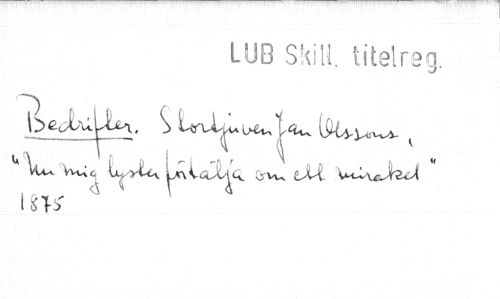 LUB Skill. titelreg.
Bedrifter. Stortjuven Jan Olssons,
"Nu mig lyster förtälja om ett mirakel"
1875